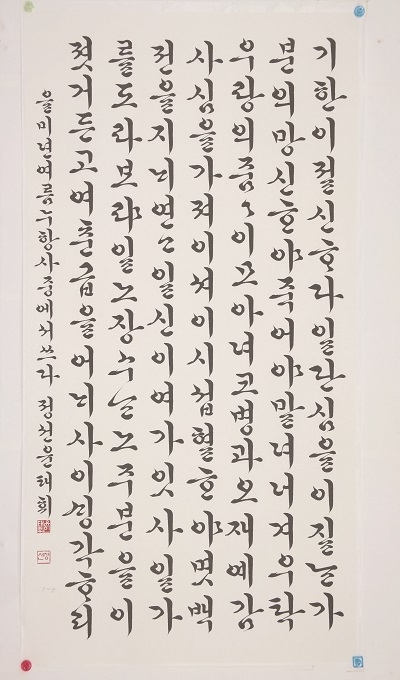 기한이졀신ᄒᆞ다일단심을이질ᄂᆞᆫ가
분의망신ᄒᆞ야죽어야말녀너겨우탁
우랑의줌〻이모아녀코병과오재예감
사심을가져이셔이시섭혈ᄒᆞ야몃백
전을지ᄂᆡ연고일신이여가잇사일가
를도라보랴일노장수ᄂᆞᆫ노주분을이
졋거든고여춘급을어ᄂᆡ사이ᄉᆡᆼ각ᄒᆞ리
을미년여름누항사중에서쓰다 정선윤태희